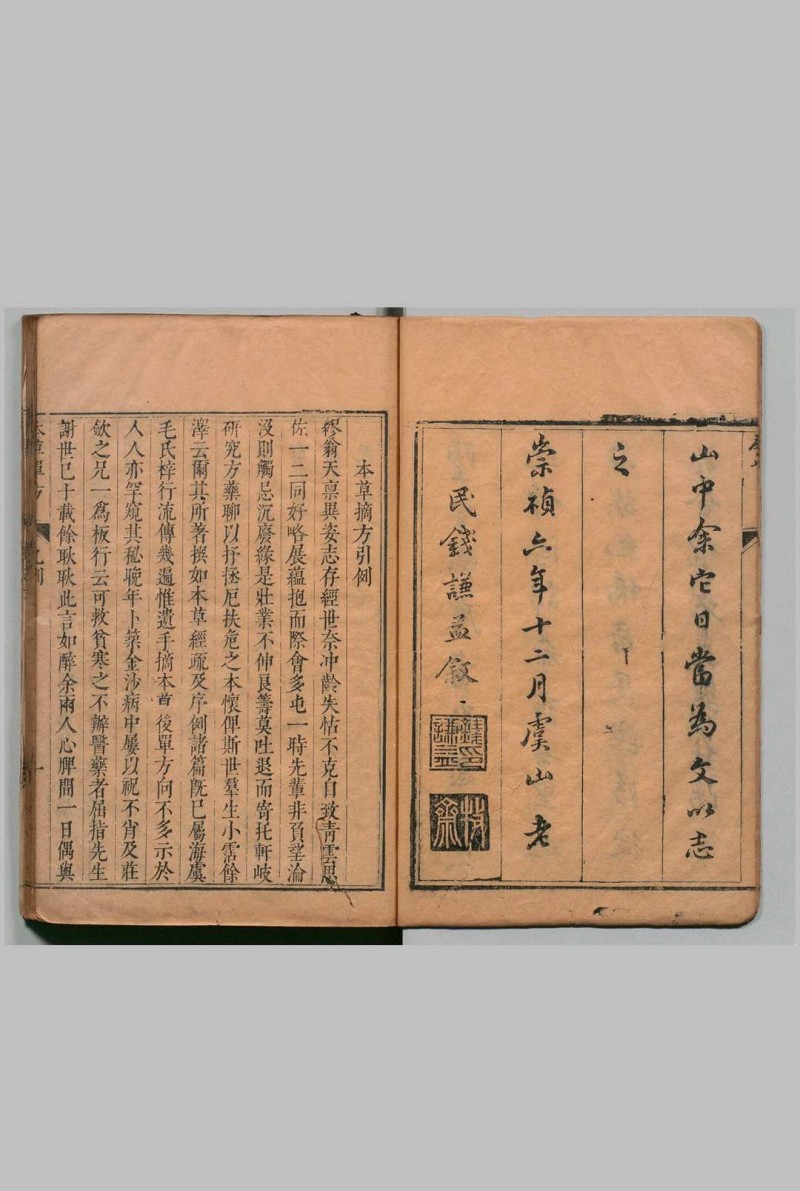 山中余它日當為文以志
之
崇禎六年十二月虞山老
民錢謙益敘
錢謙益印
牧齋
本草摘方引例
繆翁天稟異姿志存經世奈冲齡失怙不克自致青雲思
佐一二同好略展蘊抱而際會多屯一時先輩非負望淪
沒則觸忌沉廢緣是壯業不伸良籌莫吐退而寄托軒岐
研究方藥聊以抒拯厄扶危之本懷俾斯世羣生小霑餘
澤云爾其所著撰如本草經疏及序例諸篇既已屬海虞
毛氏梓行流傳幾遍惟遺手摘本草後單方向不多示於
人人亦罕窺其秘晚年卜築金沙病中屢以視不肖及莊
歛之兄一為板行云可救貧寒之不辦醫藥者屈指先生
謝世已十載餘耿耿此言如醉余兩人心脾間一日偶與
本草單方
凡例
一